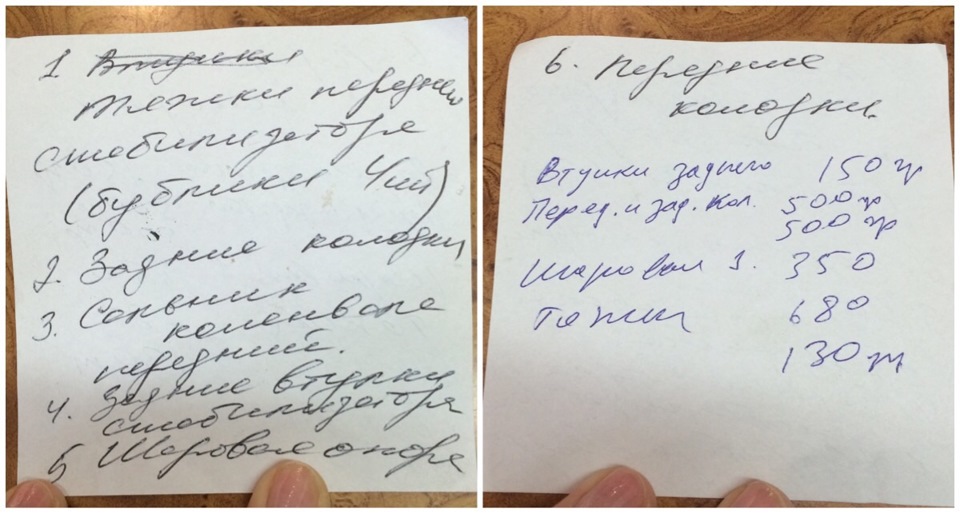 1 Втулки
тяжки переднего
стабилизатора
(бублики 4шт)
2. Задние колодки
3. Сальник
коленвала
передний.
4. Задние втулки
стабилизатора
5 Шаровая опора
6. Передние
колодки.
Втулки заднего 150 гр
Перед. и зад. кол. 500 гр
500 гр
Шаровая 1. 350
Тяжки 680
130 гр